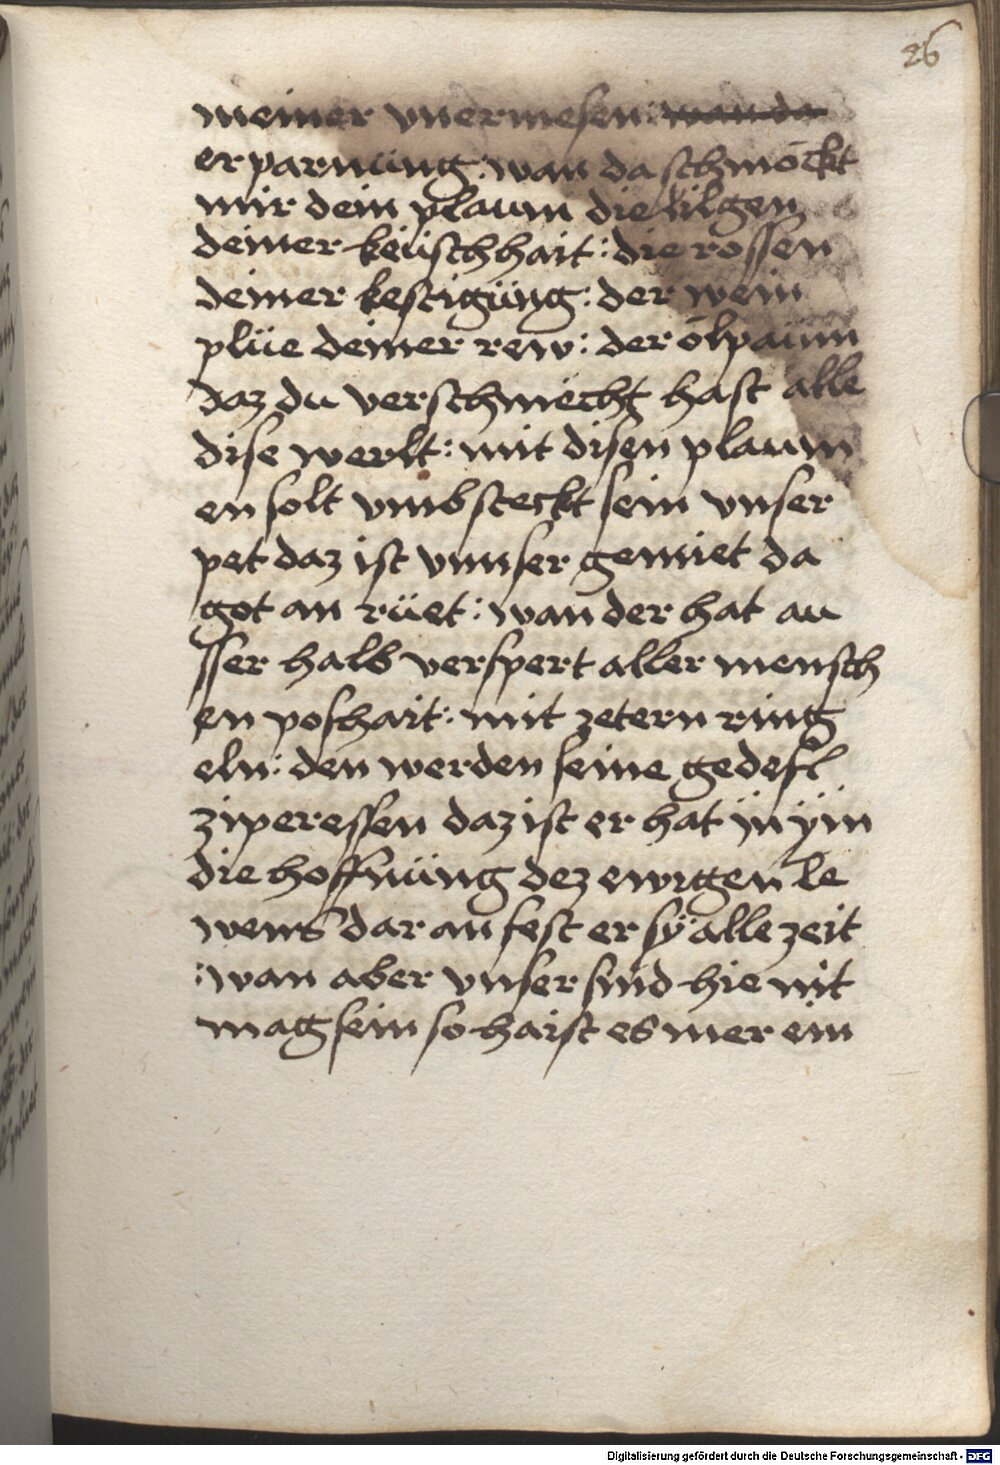 26
meiner vnermesen: wan da
erparmüng: wan da schmöckt
mir dein plaum die lilgen
deiner keüschhait: die rossen
deiner kestigüng: der wein
plüe deiner rew: der ölpaum
daz du verschmecht hast alle
dise werlt: mit disen plaum
en solt vmbsteckt sein vnser
pet daz ist vnnser gemiet da
got an rüet: wan der hat au
sser halb verspert aller mensch
en poshait: mit zetern ring
eln: den werden seine gedefl
ziperessen daz ist er hat in ÿm
die hoffnüng dez ewigen le
wens dar an fest er sÿ alle zeit
:wan aber vnser sind hie nit
mag sein so haist es mer ein
Digitalisierung gefördert durch die Deutsche Forschungsgemeinschaft - DFG